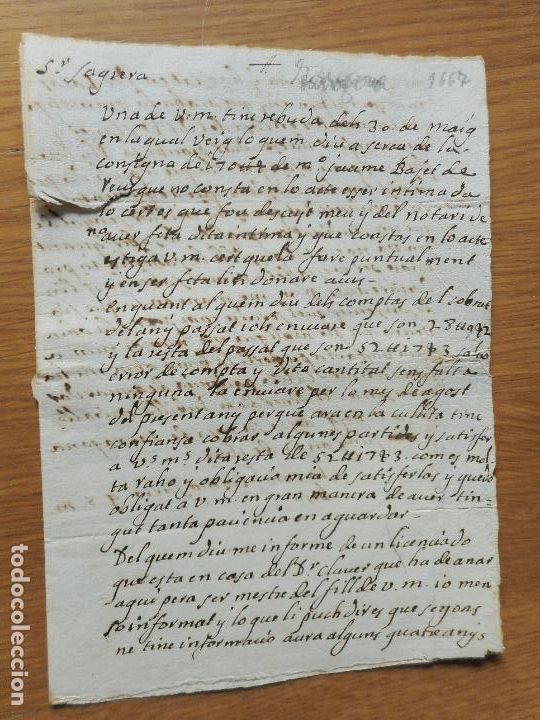 Sr. Sagrera
Tarragona 1667
Una de V.m. tinc rebuda dels 30. de maig
en la qual veig lo quem diu a serca de la
consigna de 170 # de mo Jaume Bajet de
reus que no consta en lo acte esser intimada
lo cert es que fou descuyt meu y del notari de
no aver feta dita intima y que constas en lo acte
estiga v.m. cert que la fare puntualment
y en ser feta lin donare avis
en quant al quem diu dels comptas del cobrat
del any passat iols enviare que son
y la resta del passat que son 52 # 17 # 3 salvo
error de compta y dita cantitat sens falta
ninguna la enviare per lo mes de agost
del present any perque ara en la culita tinc
confiansa cobrar algunes partides y satisfer
a V.s m.s dita resta de 52 # 17 # 3. com es mol
ta raho y obligacio mia de satisferlos y quedo
obligat a V m. en gran manera de aver tin
gut tanta paciencia en aguardar
Del quem diu me informe de un licenciado
que esta en casa del Sr claver que ha de anar
aqui pera ser mestre del fill de v.m. io men
so informat y lo que li puch dir es que segons
ne tinc informacio aura alguns quatre anys
todocoleccion.net